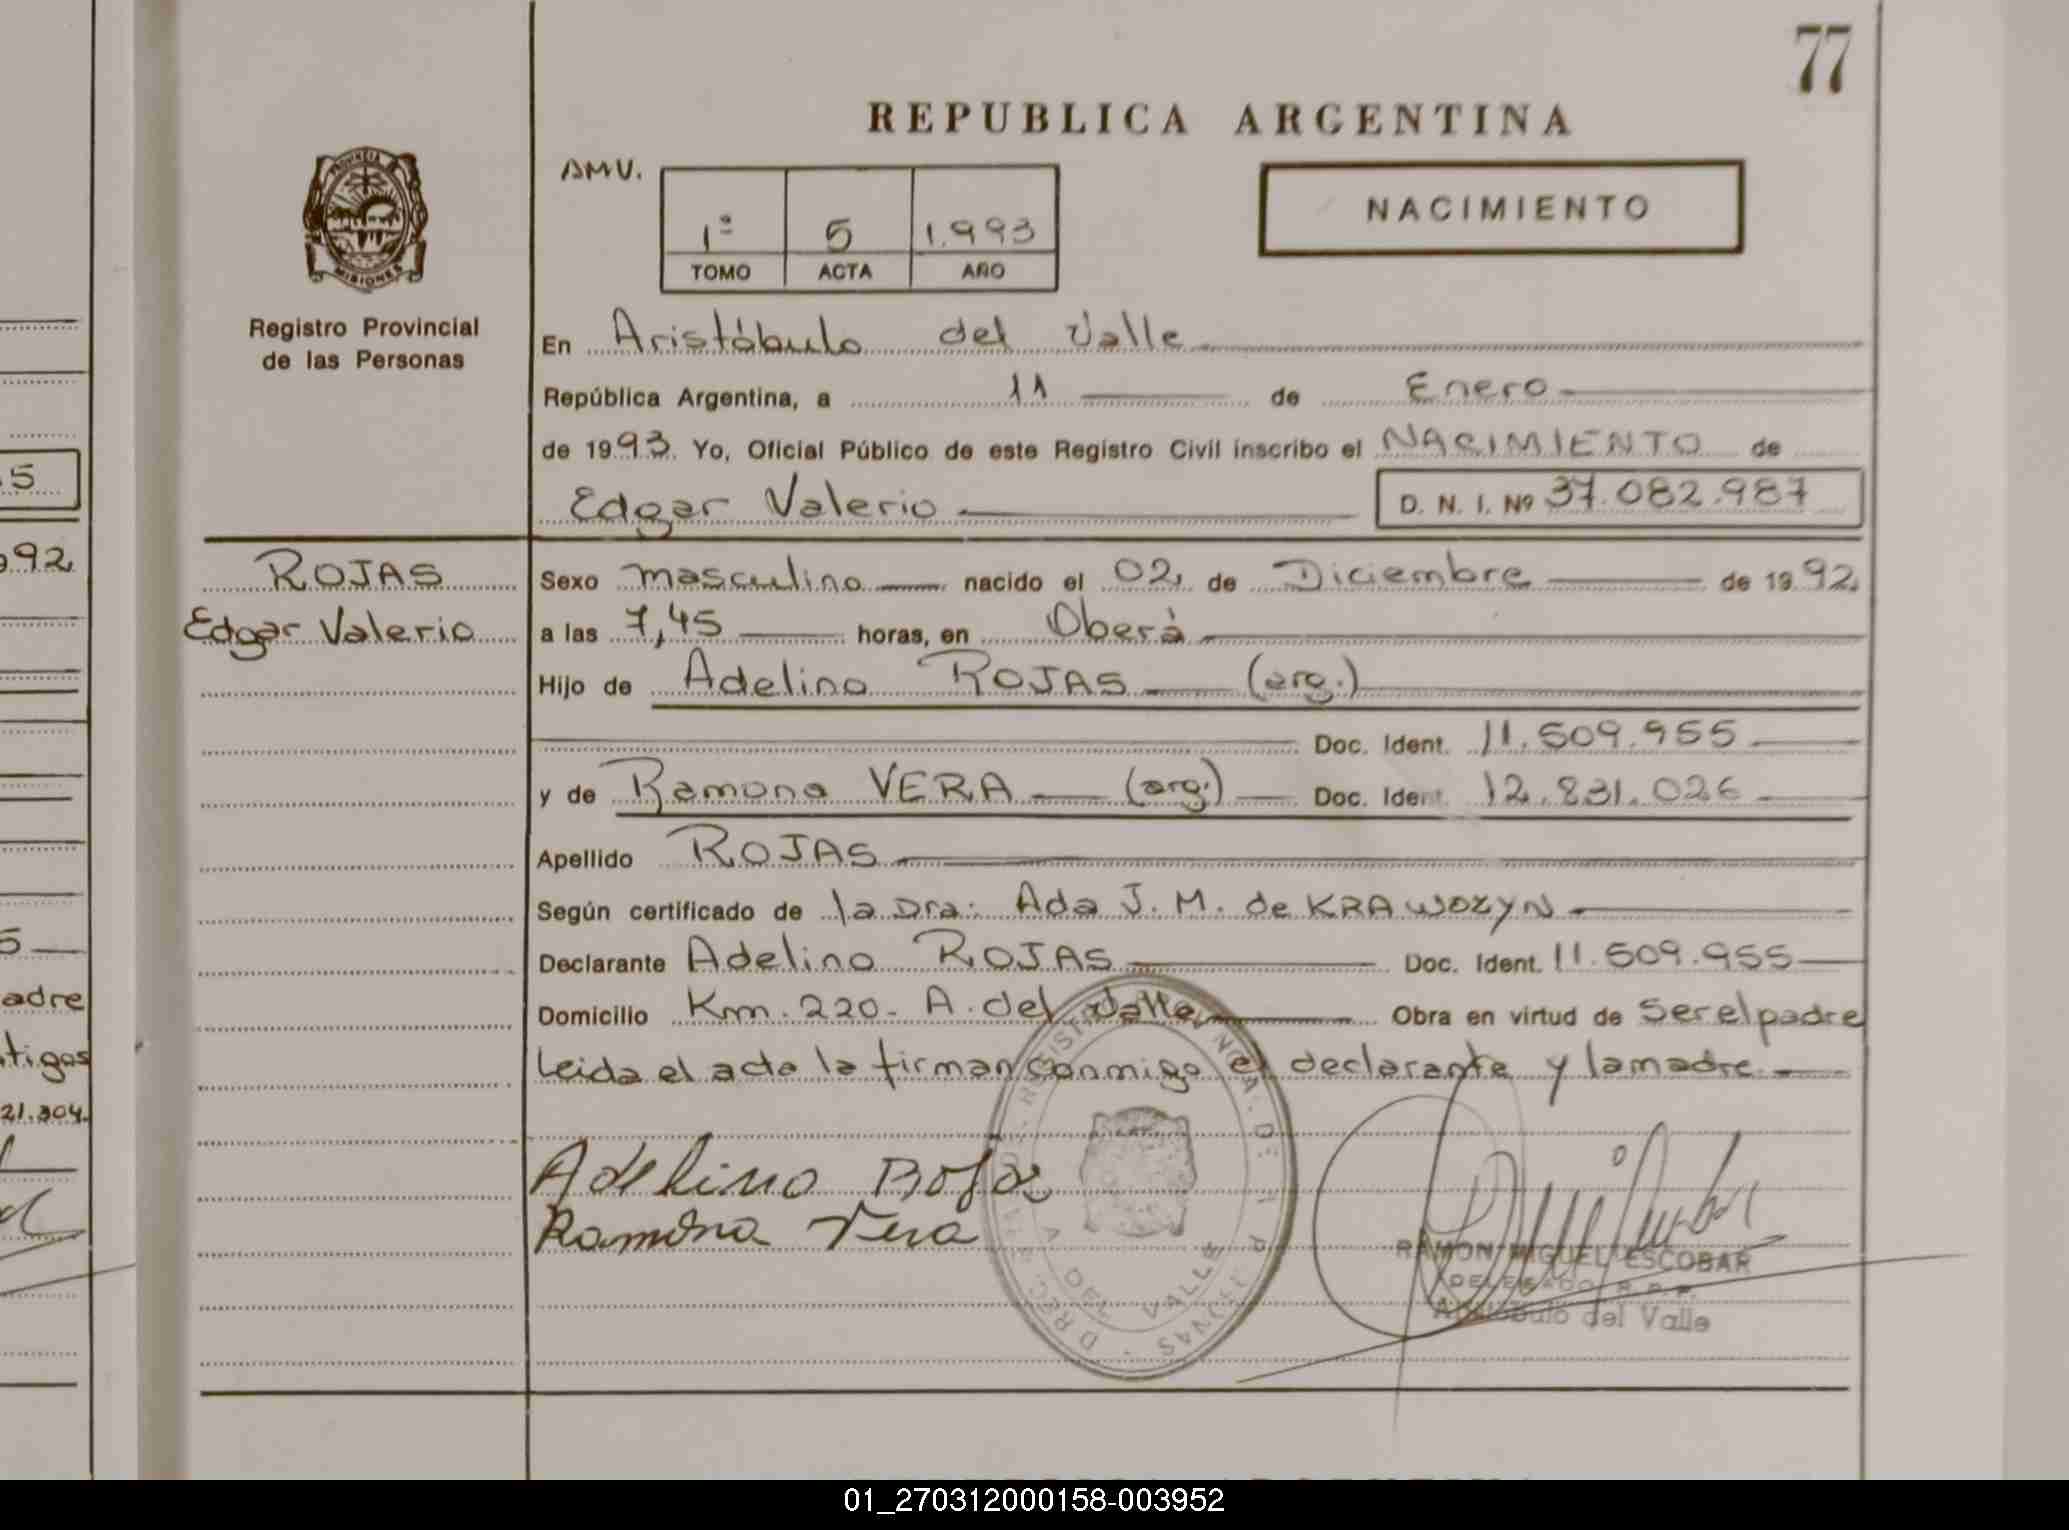 77
REPUBLICA ARGENTINA
AMV.
NACIMIENTO
1º 5 1.993
TOMO ACTA AÑO
PROVINCIA
MISIONES
Registro Provincial
de las Personas
En Aristóbulo del Valle
República Argentina, a 11 de Enero
de 1993. Yo, Oficial Público de este Registro Civil inscribo el NACIMIENTO de
Edgar Valerio D. N. I. Nº 37.082.987
ROJAS
Edgar Valerio
Sexo masculino nacido el 02 de Diciembre de 1992
a las 7,45 horas, en Oberá
Hijo de Adelino ROJAS (arg.)
Doc. Ident. 11.509.955
y de Ramona VERA (arg.) Doc. Ident. 12.831.026
Apellido ROJAS
Según certificado de la Dra. Ada J. M. de KRAWOZYN
Declarante Adelino ROJAS Doc. Ident. 11.509.955
Domicilio Km. 220. A. del Valle Obra en virtud de ser el padre
Leida el acta la firman conmigo el declarante y la madre
Adelino Rojas
Ramona Vera
A DEL VALLE
RAMON MIGUEL ESCOBAR
DELEGADO R.P.P.
Aristóbulo del Valle
5
92
5
adre
tigos
21.304.
01_270312000158-003952